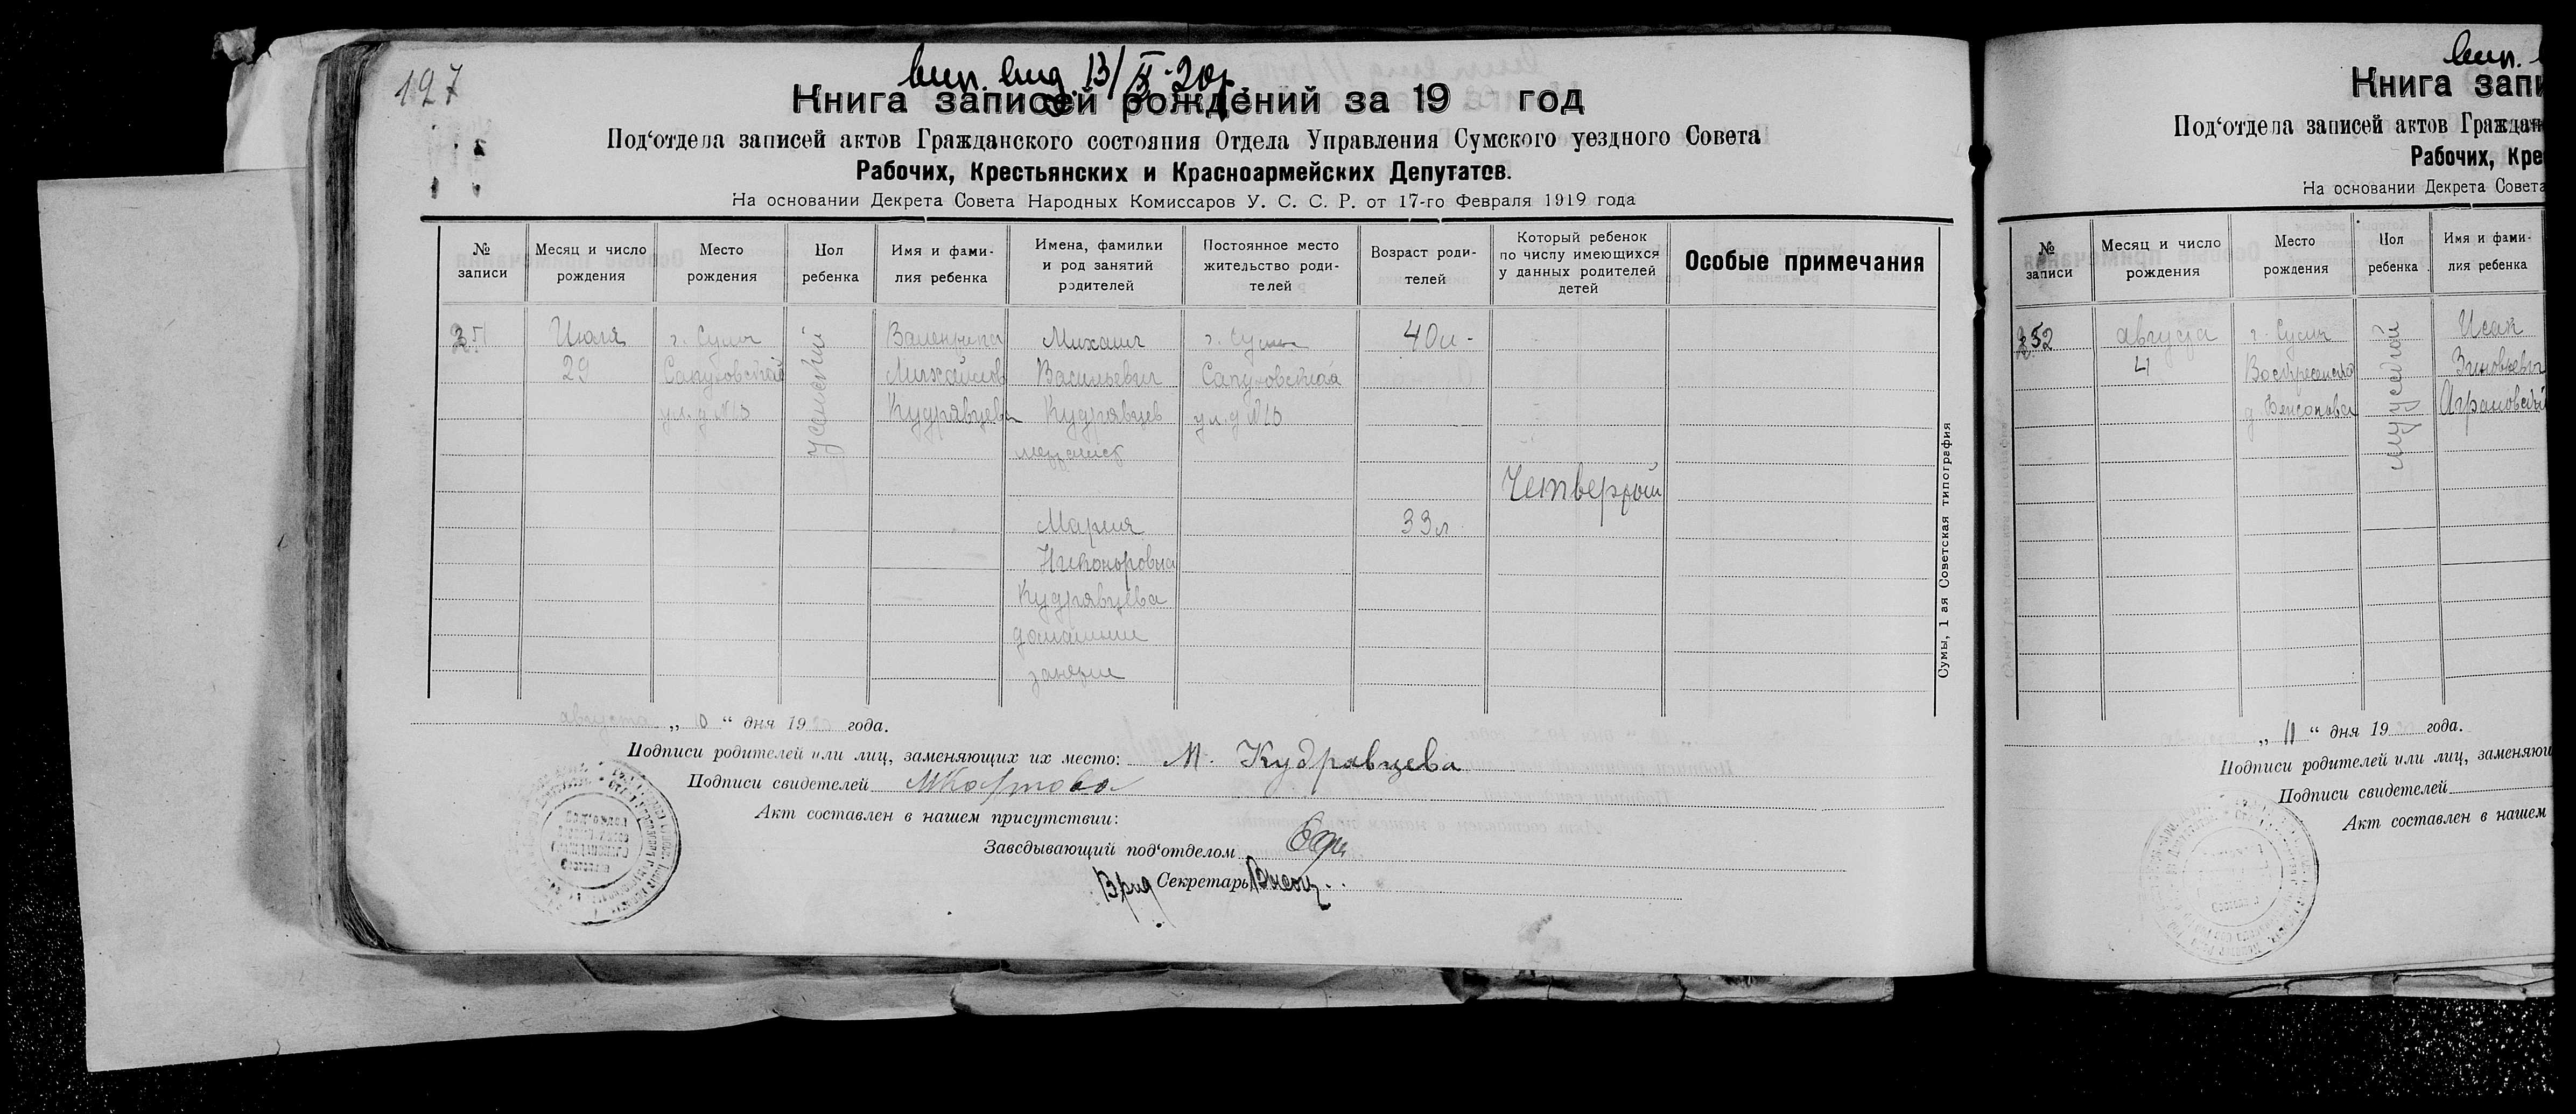 127
вип. вид. 13/X 20 р.
Книга записей рождений за 19 год
Под‘отдела записей актов Гражданского состояния Отдела Управления Сумского уездного Совета
Рабочих, Крестьянских и Красноармейских Депутатов.
На основании Декрета Совета Народных Комиссаров У. С. С. Р. от 17-го Февраля 1919 года
№ записи
Месяц и число рождения
Место рождения
Пол ребенка
Имя и фами-
лия ребенка
Имена, фамилии
и род занятий
родителей
Постоянное место
жительство роди-
телей
Возраст роди-
телей
Который ребенок
по числу имеющихся
у данных родителей
детей
Особые примечания
351
Июля
29
г. Сумы
Сапуновской
ул. д №13
женский
Валентина
Михайлов
Кудрявцева
Михаил
Васильевич
Кудрявцев
г. Сумы
Сапуновская
ул. д №13
40 л.
Четвертый
Мария
Никоноровна
Кудрявцева
домашние
занятие
33 л
августа „ 10 “ дня 19 года.
Подписи родителей или лиц, заменяющих их место: М. Кудравцева
Подписи свидетелей
Акт составлен в нашем присутствии:
Заведывающий под‘отделом
Врид Секретарь
Сумы, 1 ая Советская типография
вип.
Книга запи
Под‘отдела записей актов Граждан
Рабочих, Кре
На основании Декрета Совета
№ записи
Месяц и число рождения
Место рождения
Пол ребенка
Имя и фами-
лия ребенка
352
августа
4
г. Сумы
Воскресенская
мужской
Исак
Зиновьевич
Аграновский
„ 11 “ дня 19 года.
Подписи родителей или лиц, заменяющ
Подписи свидетелей
Акт составлен в нашем